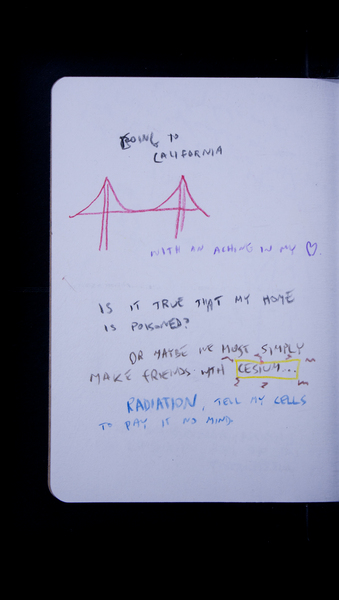 GOING TO
CALIFORNIA
WITH AN ACHING IN MY ♡.
IS IT TRUE THAT MY HOME
IS POISONED?
OR MAYBE WE MUST SIMPLY
MAKE FRIENDS WITH CESIUM...
RADIATION, TELL MY CELLS
TO PAY IT NO MIND.